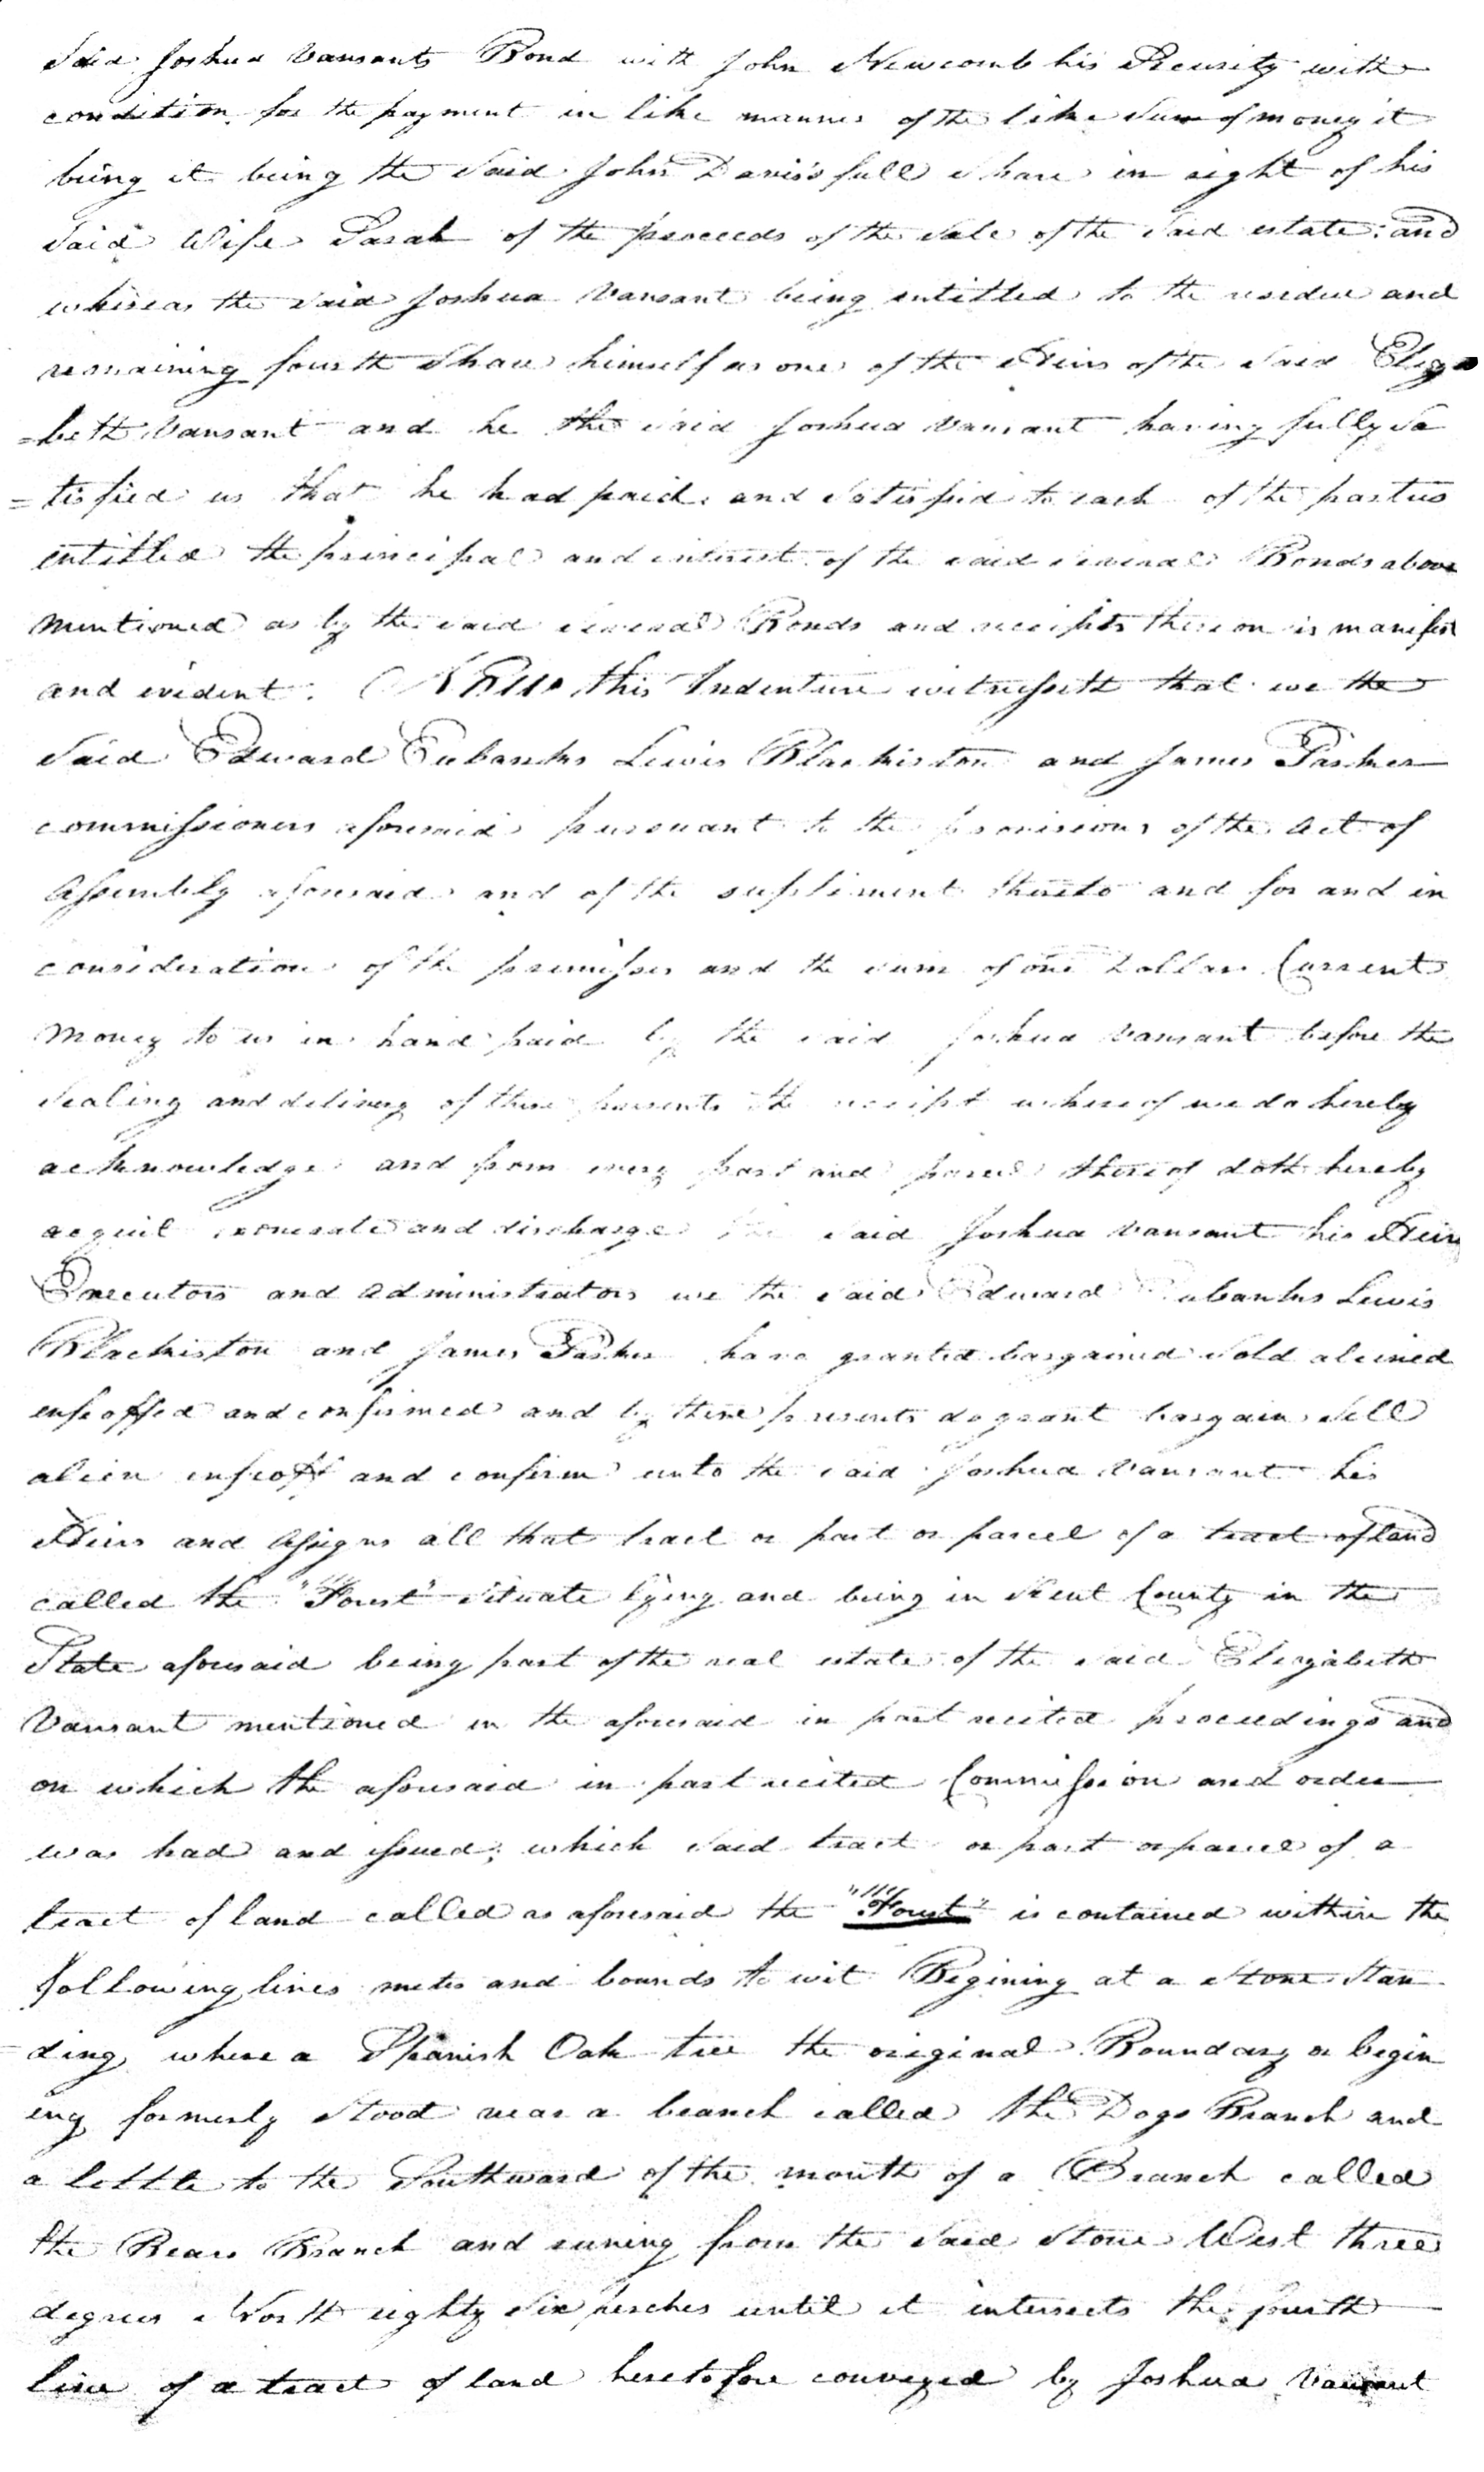 Said Joshua Vansants Bond with John Newcomb his Security with
condition for the payment in like manner of the like Sum of money it
being it being the Said John Davis's full Share in right of his
Said Wife Sarah of the proceeds of the Sale of the Said estate; and
whereas the Said Joshua Vansant being entitled to the residue and
remaining fourth Share himself as one of the Heirs of the Said Eliza
=beth Vansant and he the Said Joshua Vansant having fully Sa
=tisfied us that he had paid and Satisfied to each of the parties
entitled the principal and interest of the Said several Bonds above
mentioned as by the said several Bonds and receipts thereon is manifest
and evident. Now this Indenture witnesseth that we the
Said Edward Eubanks Lewis Blackiston and James Parker
commissioners aforesaid pursuant to the provisions of the Act of
Assembly aforesaid and of the suppliment thereto and for and in
consideration of the premisses and the sum of one Dollar Current
money to us in hand paid by the said Joshua Vansant before the
Sealing and delivery of these presents the receipt whereof we do hereby
acknowledge and from every part and parcel thereof doth hereby
acquit exonerate and discharge the said Joshua Vansant his Heirs
Executors and administrators we the said Edward Eubanks Lewis
Blackiston and James Parker have granted bargained Sold aliened
enfeoffed and confirmed and by these presents do grant bargain Sell
alien enfeoff and confirm unto the said Joshua Vansant his
Heirs and Assigns all that tract or part or parcel of a tract of land
called the "Forest" Situate lying and being in Kent County in the
State aforesaid being part of the real estate of the said Elizabeth
Vansant mentioned in the aforesaid in part recited proceedings and
on which the aforesaid in part recited Commission and order
was had and issued; which Said tract or part or parcel of a
tract of land called as aforesaid the "Forest" is contained within the
following lines metes and bounds to wit Begining at a Stone Stan
-ding where a Spanish Oak tree the original Boundary or begin
ing formerly Stood near a branch called the Dogs Branch and
a little to the Southward of the mouth of a Branch called
the Bears Branch and runing from the Said Stone West three
degrees North eighty Six perches until it intersects the fourth
line of a tract of land heretofore conveyed by Joshua Vansant